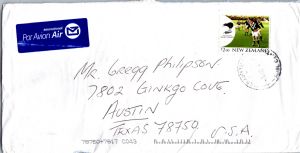 International
Par Avion Air
NEW ZEALAND
Mr. Gregg Philipson
7802 Ginkgo Cove.
AUSTIN
TEXAS 78750
U.S.A.